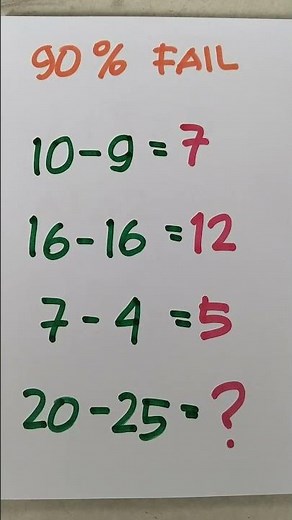 90% FAIL
10-9=7
16-16=12
7-4=5
20-25=?